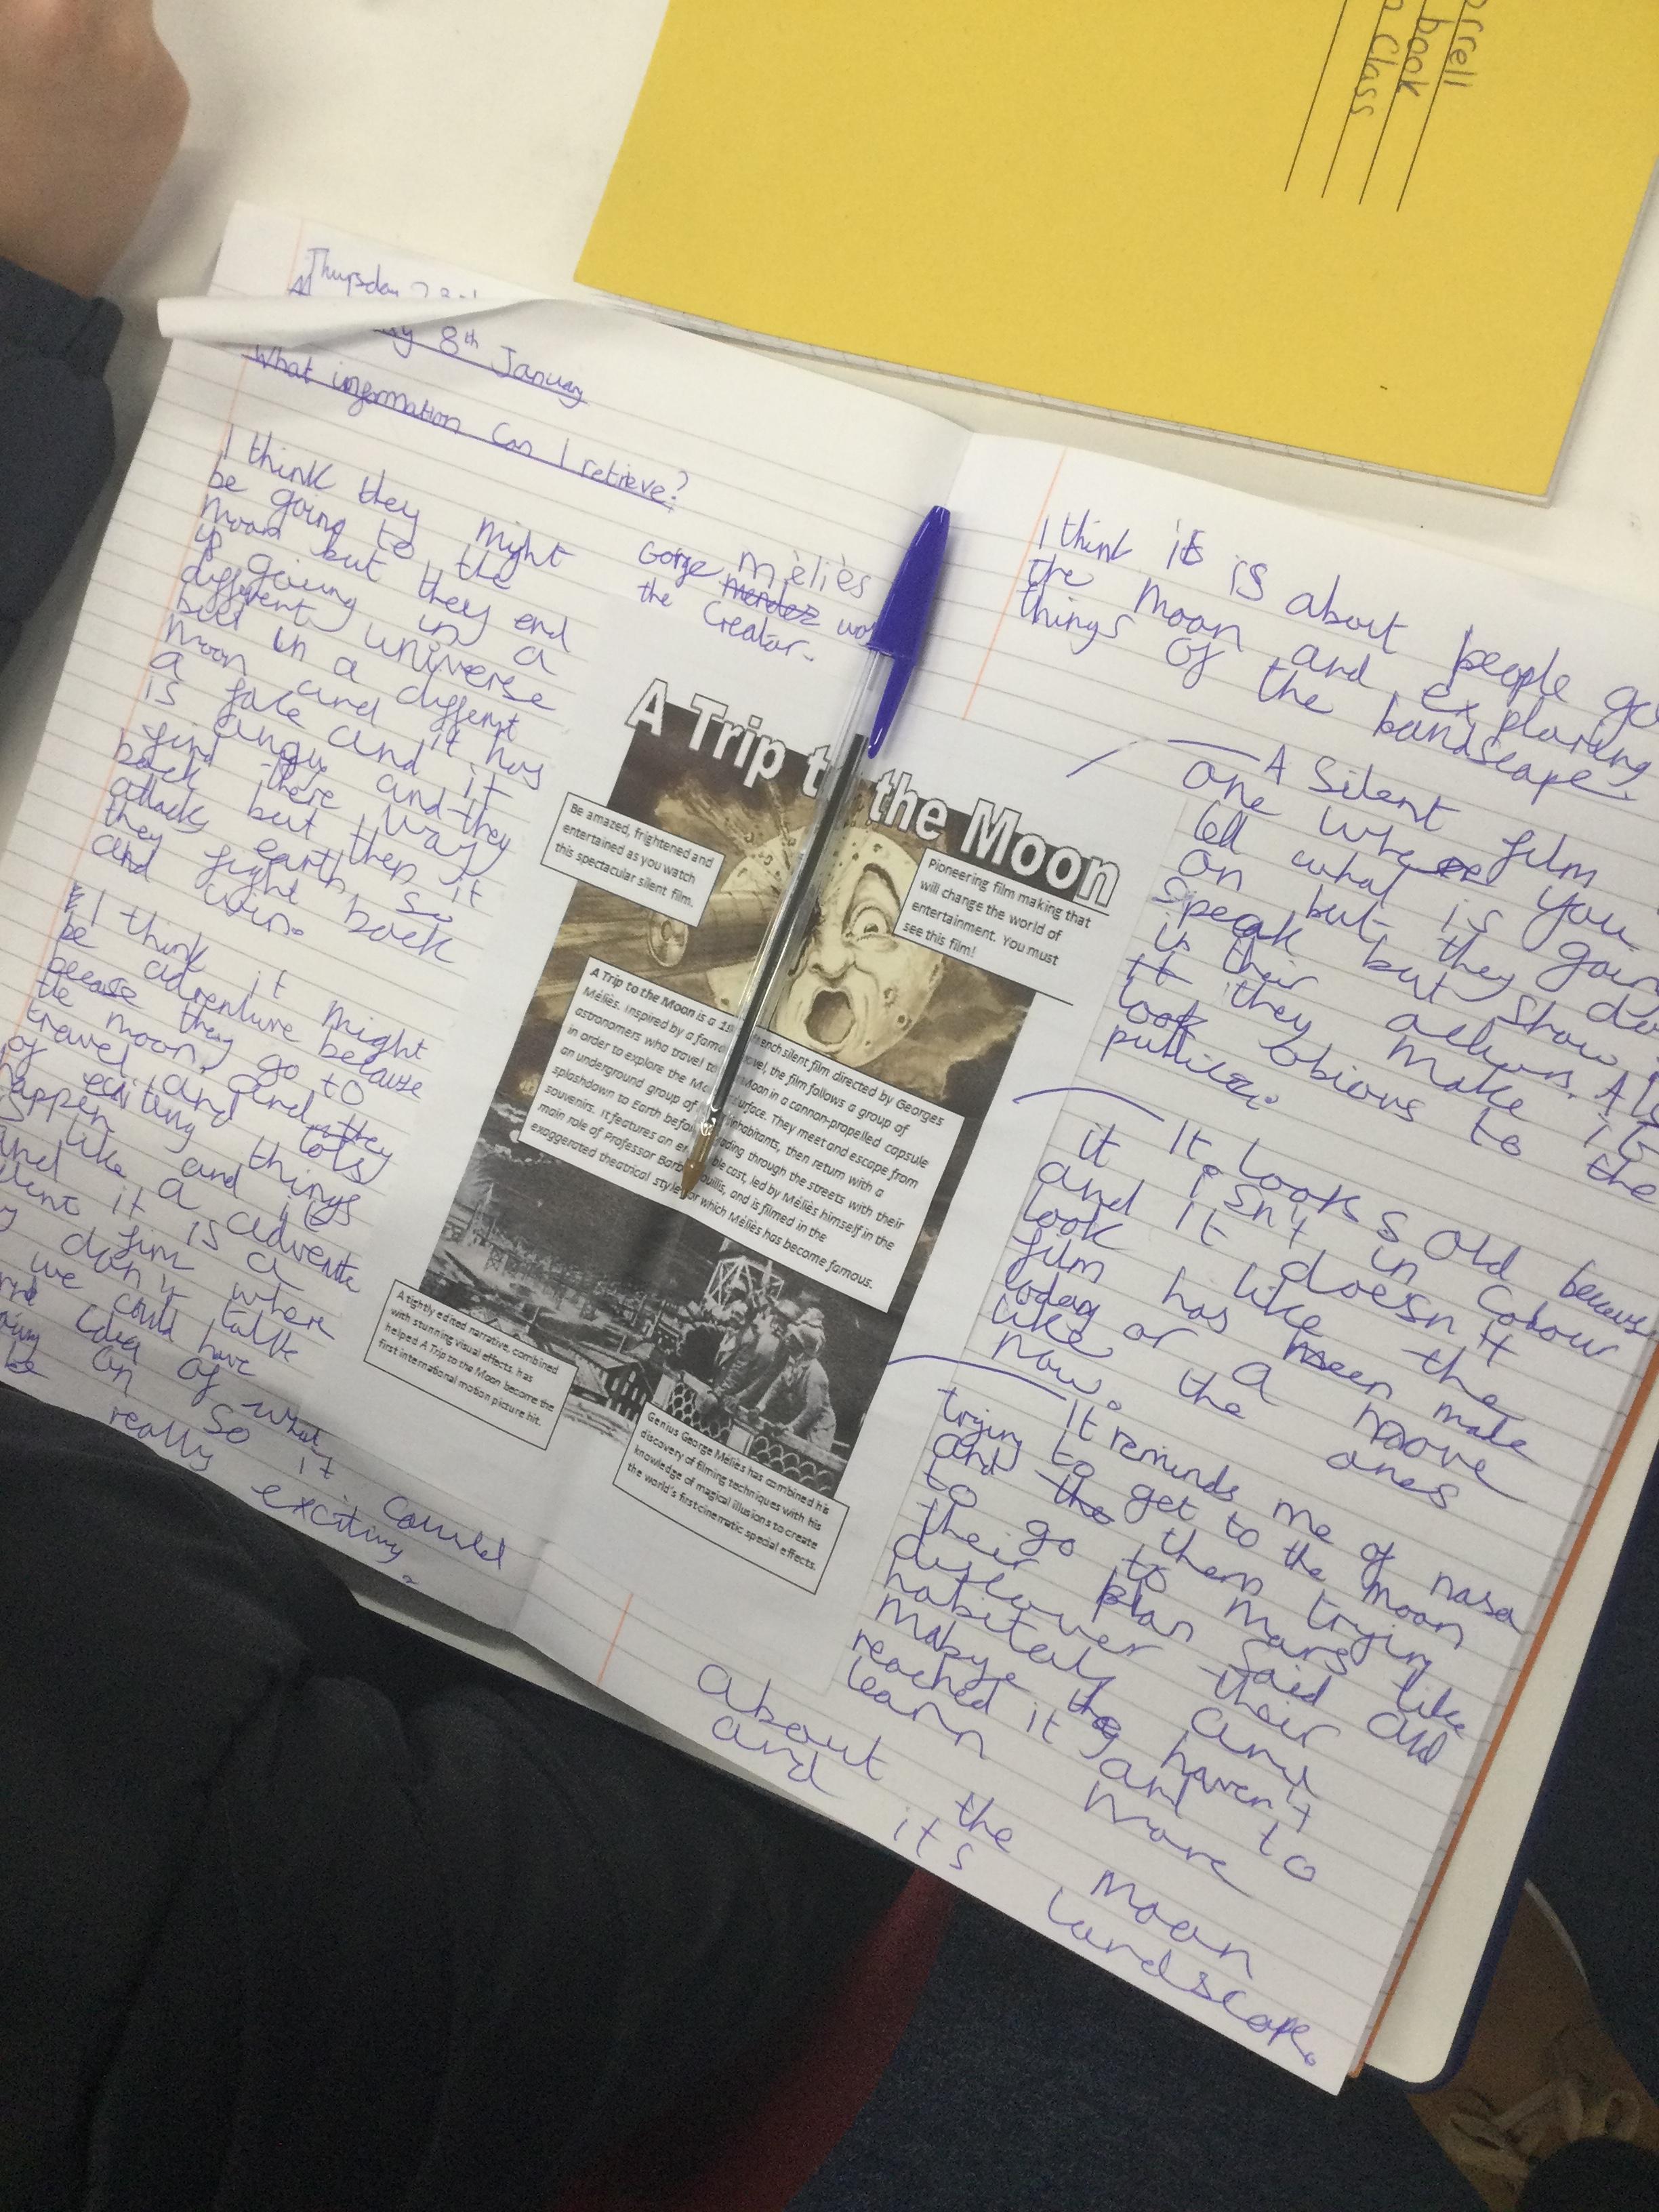 rrell
book
Class
Thursday
8th January
What information can I retrieve?
I think they might
be going to the
moon but they end
up going in a
different universe
but in a different
moon and it has
a face and it
is angry and they
find there way
back but then it
attacks earth so
they fight back
and win.
I think it might
be adventure because
please they go to
the moon, and they
travel and lots
of exciting things
happen and it
is like a adventure
and it is a
silent film where
they don't talk
we could have
idea of what
on so it could
be really exciting.
Gorge mèliès
mendez
the creator.
A Trip to the Moon
Be amazed, frightened and
entertained as you watch
this spectacular silent film.
Pioneering film making that
will change the world of
entertainment. You must
see this film!
A Trip to the Moon is a French silent film directed by Georges
Méliès. Inspired by a novel, the film follows a group of
astronomers who travel to Moon in a cannon-propelled capsule
in order to explore the surface. They meet and escape from
an underground group of inhabitants, then return with a
splashdown to Earth before parading through the streets with their
souvenirs. It features an cast, led by Méliès himself in the
main role of Professor and is filmed in the
exaggerated theatrical style for which Méliès has become famous.
A tightly edited narrative, combined
with stunning visual effects, has
helped A Trip to the Moon become the
first international motion picture hit.
Genius George Méliès has combined his
discovery of filming techniques with his
knowledge of magical illusions to create
the world's first cinematic special effects.
I think it is about people
the moon and exploring
things of the bandscape.
A Silent film
one where you
tell what is going
on but they
speak but show
in their actions. Als
it they make it
look obious to the
publice.
It looks old because
it isn't in colour
and it doesn't
look like the
film has been made
today or a move
like the ones
now.
It reminds me of nasa
trying to get to the moon
and the them trying
to go to Mars like
their plan said
discover their
habitaly and
mabye they haven't
reached it yet to
learn more
about the moon
and its landscape.